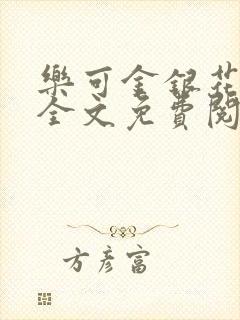 樂可金銀花
全文免費閱
方彥富